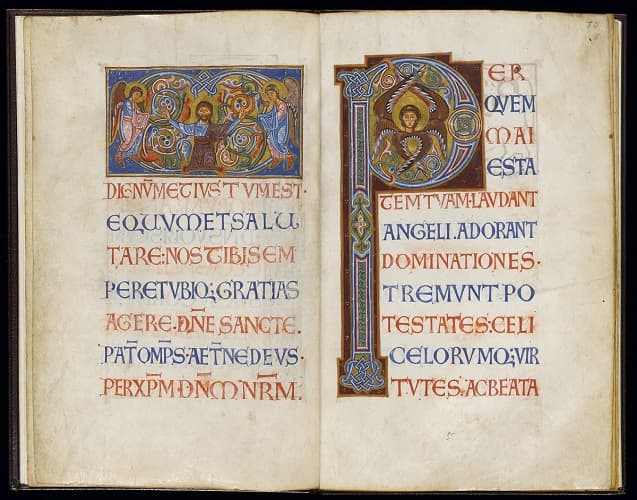 DIGNV̄METIVSTVMEST·
EQVVMETSALV
TARE:NOSTIBISEM
PERETVBIQ;GRATIAS
AGERE.DN̄E SANCTE.
PAT̄OMP̄S·AET̄NEDEVS·
PERXP̄M·DN̄M NR̄M.
PER
QVEM
MAI
ESTA
TEMTVAM·LAVDANT
ANGELI.ADORANT
DOMINATIONES·
TREMVNT PO
TESTATES·CELI
CELORVMQ;VIR
TVTES·ACBEATA